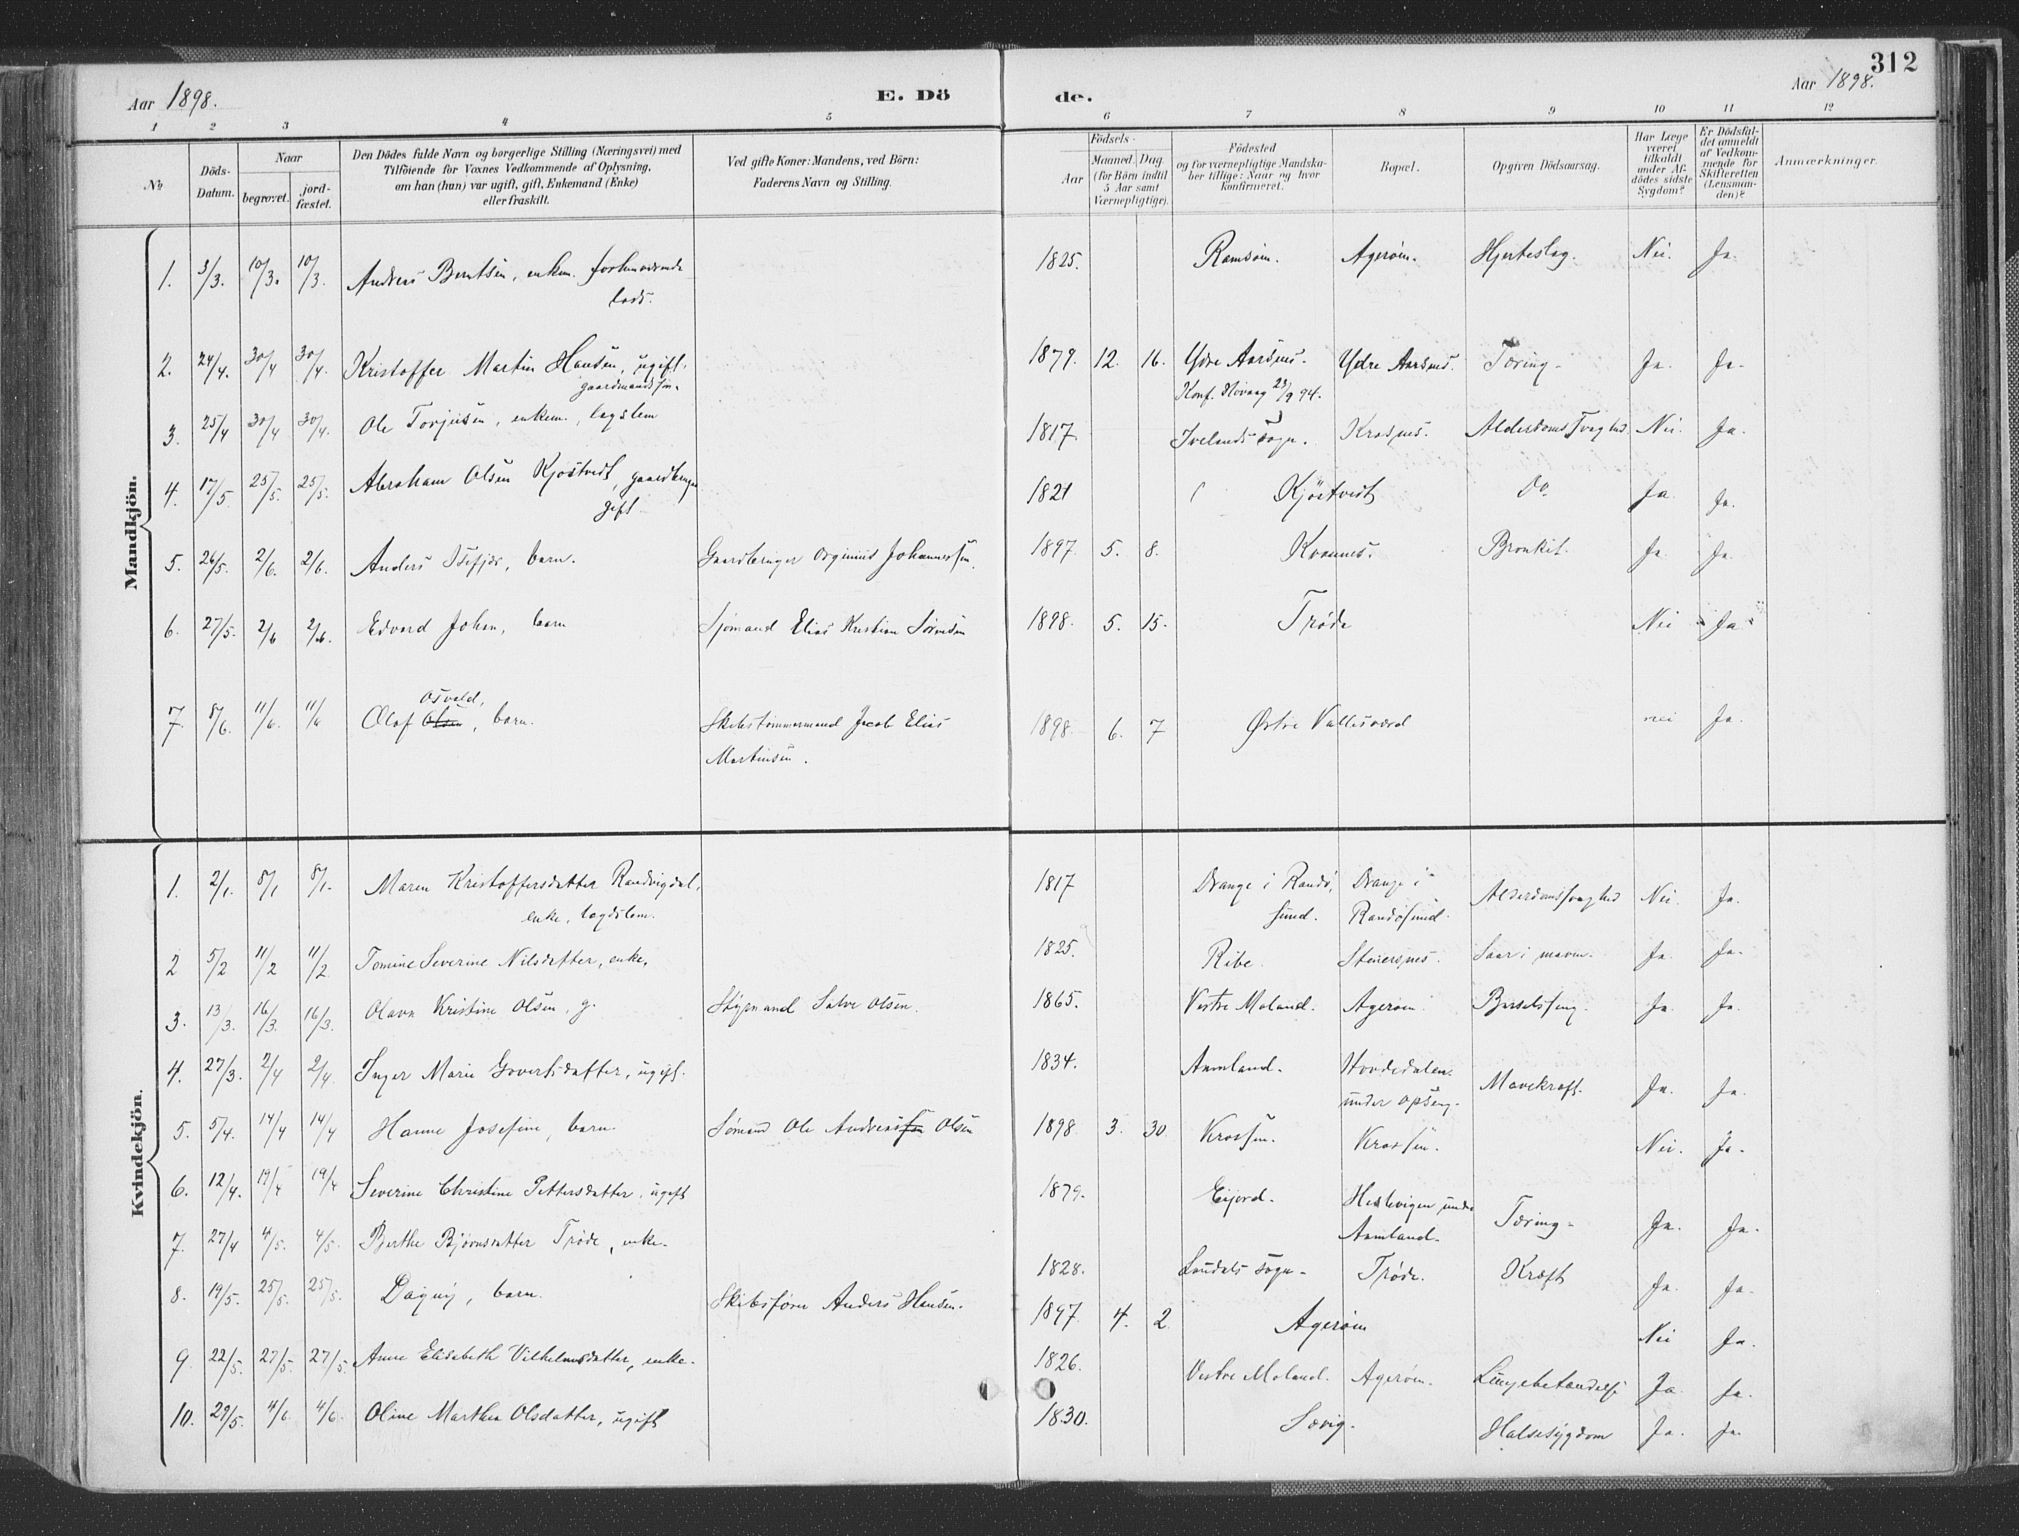 312
Aar 1898.
E. Dö
de.
Aar 1898.
1 2 3 4 5 6 7 8 9 10 11 12
No
Döds-Datum.
Naar
begravet.
jord-fæstet.
Den Dödes fulde Navn og borgerlige Stilling (Næringsvei) med
Tilföiende for Voxnes Vedkommende af Oplysning,
om han (hun) var ugift, gift, Enkemand (Enke)
eller fraskilt.
Ved gifte Koner: Mandens, ved Börn:
Faderens Navn og Stilling.
Födsels-
Aar
Maaned. Dag.
(for Börn indtil
5 Aar samt
Værnepligtige).
Födested
og for værnepligtige Mandska-
ber tillige: Naar og hvor
konfirmeret.
Bopæl.
Opgiven Dödsaarsag.
Har Læge
været
tilkaldt
under Af-
dödes sidste
Sygdom?
Er Dödsfal-
det anmeldt
af Vedkom-
mende for
Skifteretten
(Lensman-
den)?
Anmærkninger.
Mandkjön.
1. 3/3. 10/3. 10/3. Anders Berntsen, enkem. forhenværende
lods.
1825. Ramsøen. Agerøen. Hjerteslag. Nei. Ja.
2. 24/4. 30/4 30/4. Kristoffer Martin Hansen, ugift.
gaardmandssøn.
1879. 12. 16. Ydre Aarsnes. Ydre Aarsnes. Tæring. Ja. Ja.
Konf. Høvaag 23/9 94.
3. 25/4 30/4 30/4. Ole Torjusen, enkem., lægslem
1817. Ivelands sogn. Krosnes. Alderdomssvaghed. Nei. Ja.
4. 17/5. 25/5. 25/5. Abraham Olsen Kjøstvedt, gaardbruger
gift.
1821 Kjøstvedt Do. Ja. Ja.
5. 26/5. 2/6. 2/6. Anders, barn. Gaardbruger Johannessen.
1897. 5. 8. Kvannes. Bronkit. Ja. Ja.
6. 27/5. 2/6 2/6. Edvard Johan, barn Sjømand Elias Kristian Sørensen
1898. 5. 15. Trøde Nei Ja
7. 8/6. 11/6. 11/6 Olaf Osvald, barn. Skibstømmermand Jacob Elias
Martinsen.
1898. 6. 7 Østre Vallesværd nei Ja.
Kvindekjön.
1. 2/1. 8/1 8/1. Maren Kristoffersdatter Randvigdal,
enke, lægdslem.
1817 Drange i Randø- Drange i Alderdomssvaghed Nei. Ja.
sund. Randøsund.
2 5/2 11/2 11/2. Tomine Severine Nilsdatter, enke.
1825. Ribe. Steinersnes. Saar i maven. Ja. Ja.
3. 13/3. 16/3. 16/3. Olava Kristine Olsen, g. Styrmand Salve Olsen.
1865. Vestre Moland. Agerøen. Barselsseng. Ja. Ja.
4. 27/3. 2/4 2/4. Inger Marie Govertsdatter, ugift.
1834. Aamland. Hovdedalen Mavekræft. Ja. Ja.
under Opseng.
5. 5/4. 14/4 14/4 Hanne Josefine, barn. Sømand Ole Andreas Olsen
1898. 3. 30. Krossen. Krossen. Nei. Ja.
6. 12/4. 19/4 19/4 Severine Christine Pettersdatter, ugift
1879. Eijord. Heslevigen under Tæring. Ja. Ja.
Aamland.
7. 27/4 4/5. 4/5. Berthe Bjørnsdatter Trøde, enke.
1828. Laudals sogn. Trøde. Kræft Ja. Ja.
8. 19/5. 25/5. 25/5. Dagny, barn. Skibsfører Anders Hansen.
1897. 4. 2. Agerøen Nei Ja.
9. 22/5. 27/5. 27/5. Anne Elisabeth Vilhelmsdatter, enke.
1826. Vestre Moland. Agerøen. Lungebetændelse Ja. Ja.
10. 29/5. 4/6 4/6. Oline Marthea Olsdatter, ugift
1830. Sævig. Halssygdom Ja. Ja.